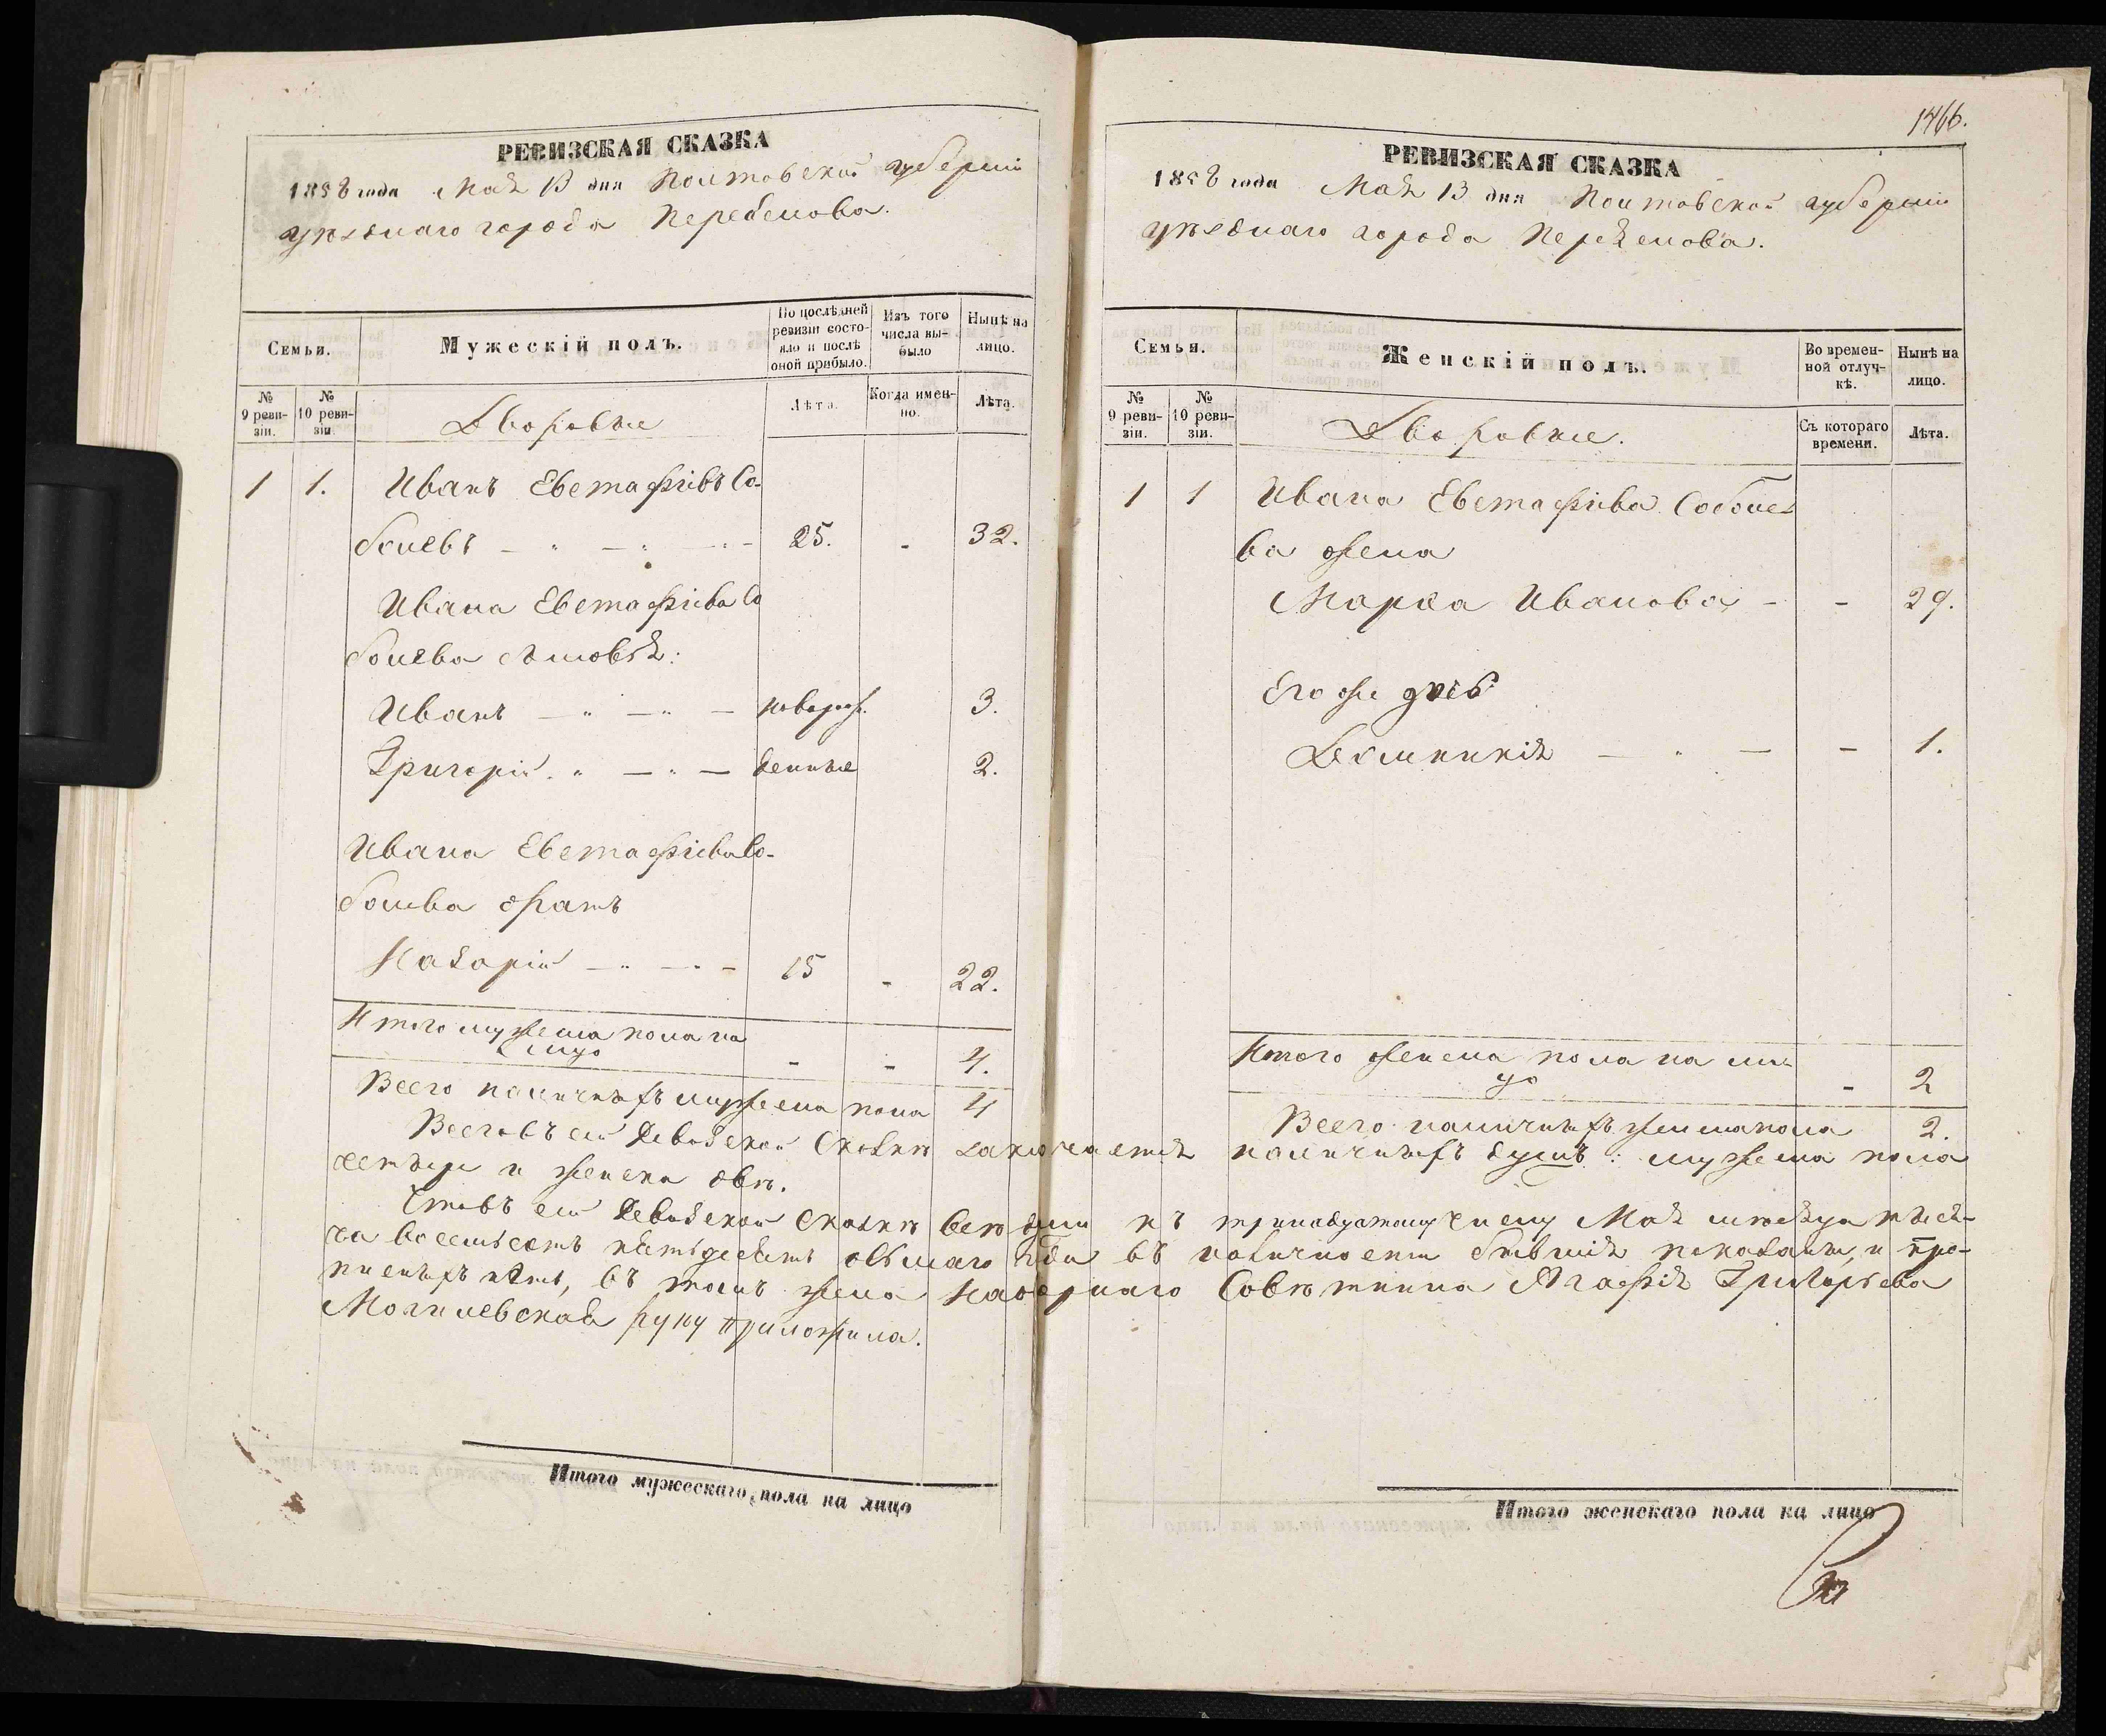 РЕВИЗСКАЯ СКАЗКА
1858 года Мая 13 дня Полтавской губерніи
уѣзднаго города Переяслова.
Семьи.
Мужескій полъ.
По послѣдней ревизіи состояло и послѣ оной прибыло.
Изъ того числа выбыло
Нынѣ на лицо.
№ 9 ревизіи.
№ 10 ревизіи.
Дворовые
Лѣта.
Когда именно.
Лѣта.
1 1. Иванъ Евстафіевъ Со-
болевъ 25. - 32.
Ивана Евстафіева Со
болева сыновья:
Иванъ новорож. 3.
Григорій денные 2.
Ивана Евстафіева Со-
болева братъ
Назарій 15 - 22.
Итого мужеска пола на
лицо - - 4.
Всего наличныхъ мужеска пола 4
1466.
РЕВИЗСКАЯ СКАЗКА
1858 года Мая 13 дня Полтавской губерніи
уѣзднаго города Переяслова.
Семьи.
Женскій полъ.
Во временной отлучкѣ.
Нынѣ на лицо.
№ 9 ревизіи.
№ 10 ревизіи.
Дворовые.
Съ котораго времени.
Лѣта.
1 1 Ивана Евстафіева Соболе
ва жена
Иванова - - 29.
Его же дочь
Домникія - 1.
Итого женска пола на ли
цо - 2
Всего наличныхъ женска пола 2.
Всего въ сей Ревизской Сказкѣ заключается наличныхъ душъ: мужеска пола
четыре и женска двѣ.
Что въ сей Ревизской Сказкѣ всѣ души къ тринадцатому числу Мая мѣсяца тыся-
ча восемьсотъ пятьдесятъ осьмаго года въ наличности бывшія показаны, и про-
писныхъ нѣтъ, въ томъ жена Надворнаго Совѣтника Агафія Григорьева
Могилевская руку приложила.
Итого мужескаго пола на лицо
Итого женскаго пола на лицо